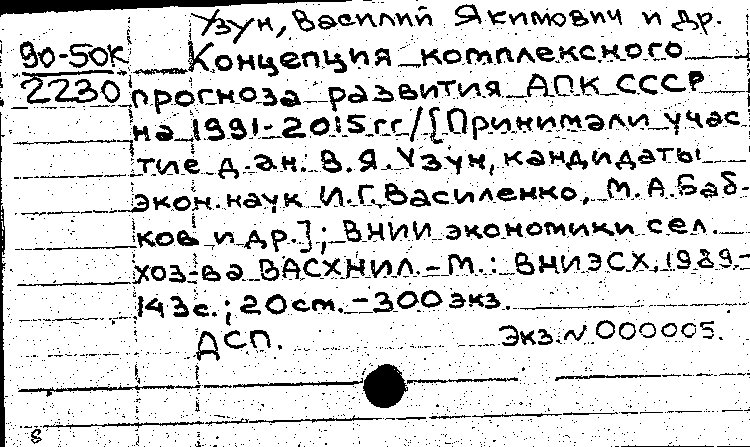 Узун, Василий Якимович и др.
90-50К
2230
Концепция комплексного
прогноза развития АПК СССР
на 1991-2015 гг/[Принимали учас
тие д.эн. В.Я.Узун, кандидаты
экон.наук И.Г.Василенко, М.А.Баб-
ков и др.]; ВНИИ экономики сел.
хоз-ва ВАСХНИЛ.-М.: ВНИЭСХ, 1989-
143с.; 20см.-300 экз.
ДСП. Экз.N 000005.
8